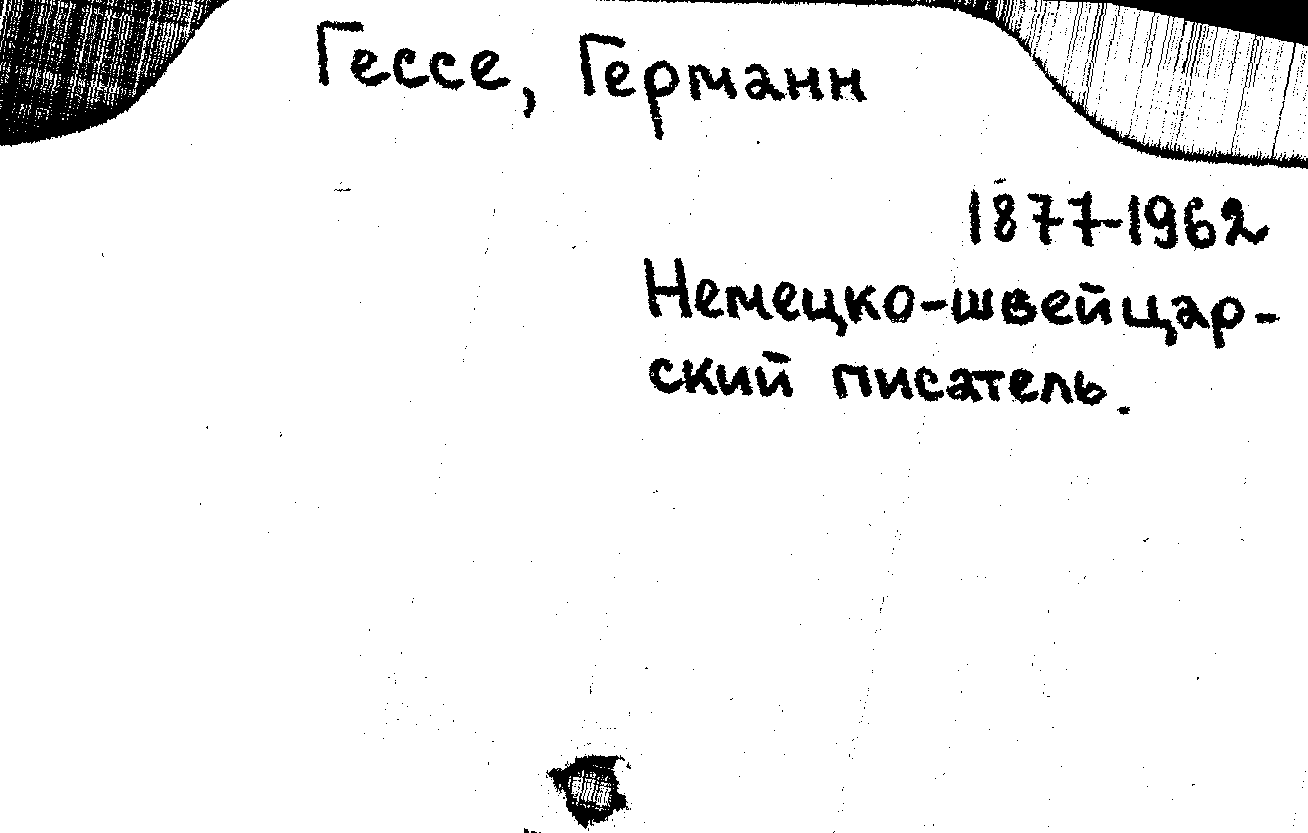 Гессе, Германн
1877-1962
Немецко-швейцар-
ский писатель.